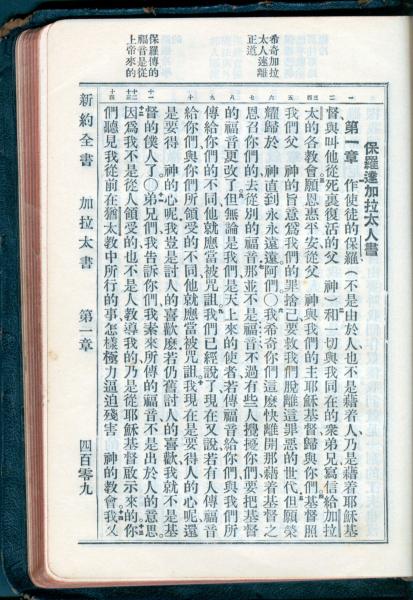 希奇加拉
太人速離
正道
保羅傳的
福音是從
上帝來的
保羅達加拉太人書
第一章 作使徒的保羅(不是由於人、也不是藉着人、乃是藉着耶穌基
督、與叫他從死裏復活的父 神)和一切與我同在的衆弟兄、寫信給加拉
太的各教會願恩惠平安、從父 神與我們的主耶穌基督、歸與你們基督照
我們父 神的旨意爲我們的罪捨己、要救我們脫離這罪惡的世代但願榮
耀歸於 神直到永永遠遠阿們○我希奇你們這麼快離開那藉着基督之
恩召你們的、去從別的福音、那並不是福音、不過有些人攪擾你們、要把基督
的福音更改了但無論是我們、是天上來的使者、若傳福音給你們、與我們所
傳給你們的不同、他就應當被咒詛我們已經說了、現在又說、若有人傳福音
給你們、與你們所領受的不同、他就應當被咒詛我現在是要得人的心呢、還
是要得 神的心呢我豈是討人的喜歡麼若仍舊討人的喜歡、我就不是基
督的僕人了○弟兄們、我告訴你們、我素來所傳的福音、不是出於人的意思
因爲我不是從人領受的、也不是人教導我的、乃是從耶穌基督啟示來的你
們聽見我從前在猶太教中所行的事、怎樣極力逼迫殘害 神的教會我又
新約全書 加拉太書 第一章 四百零九